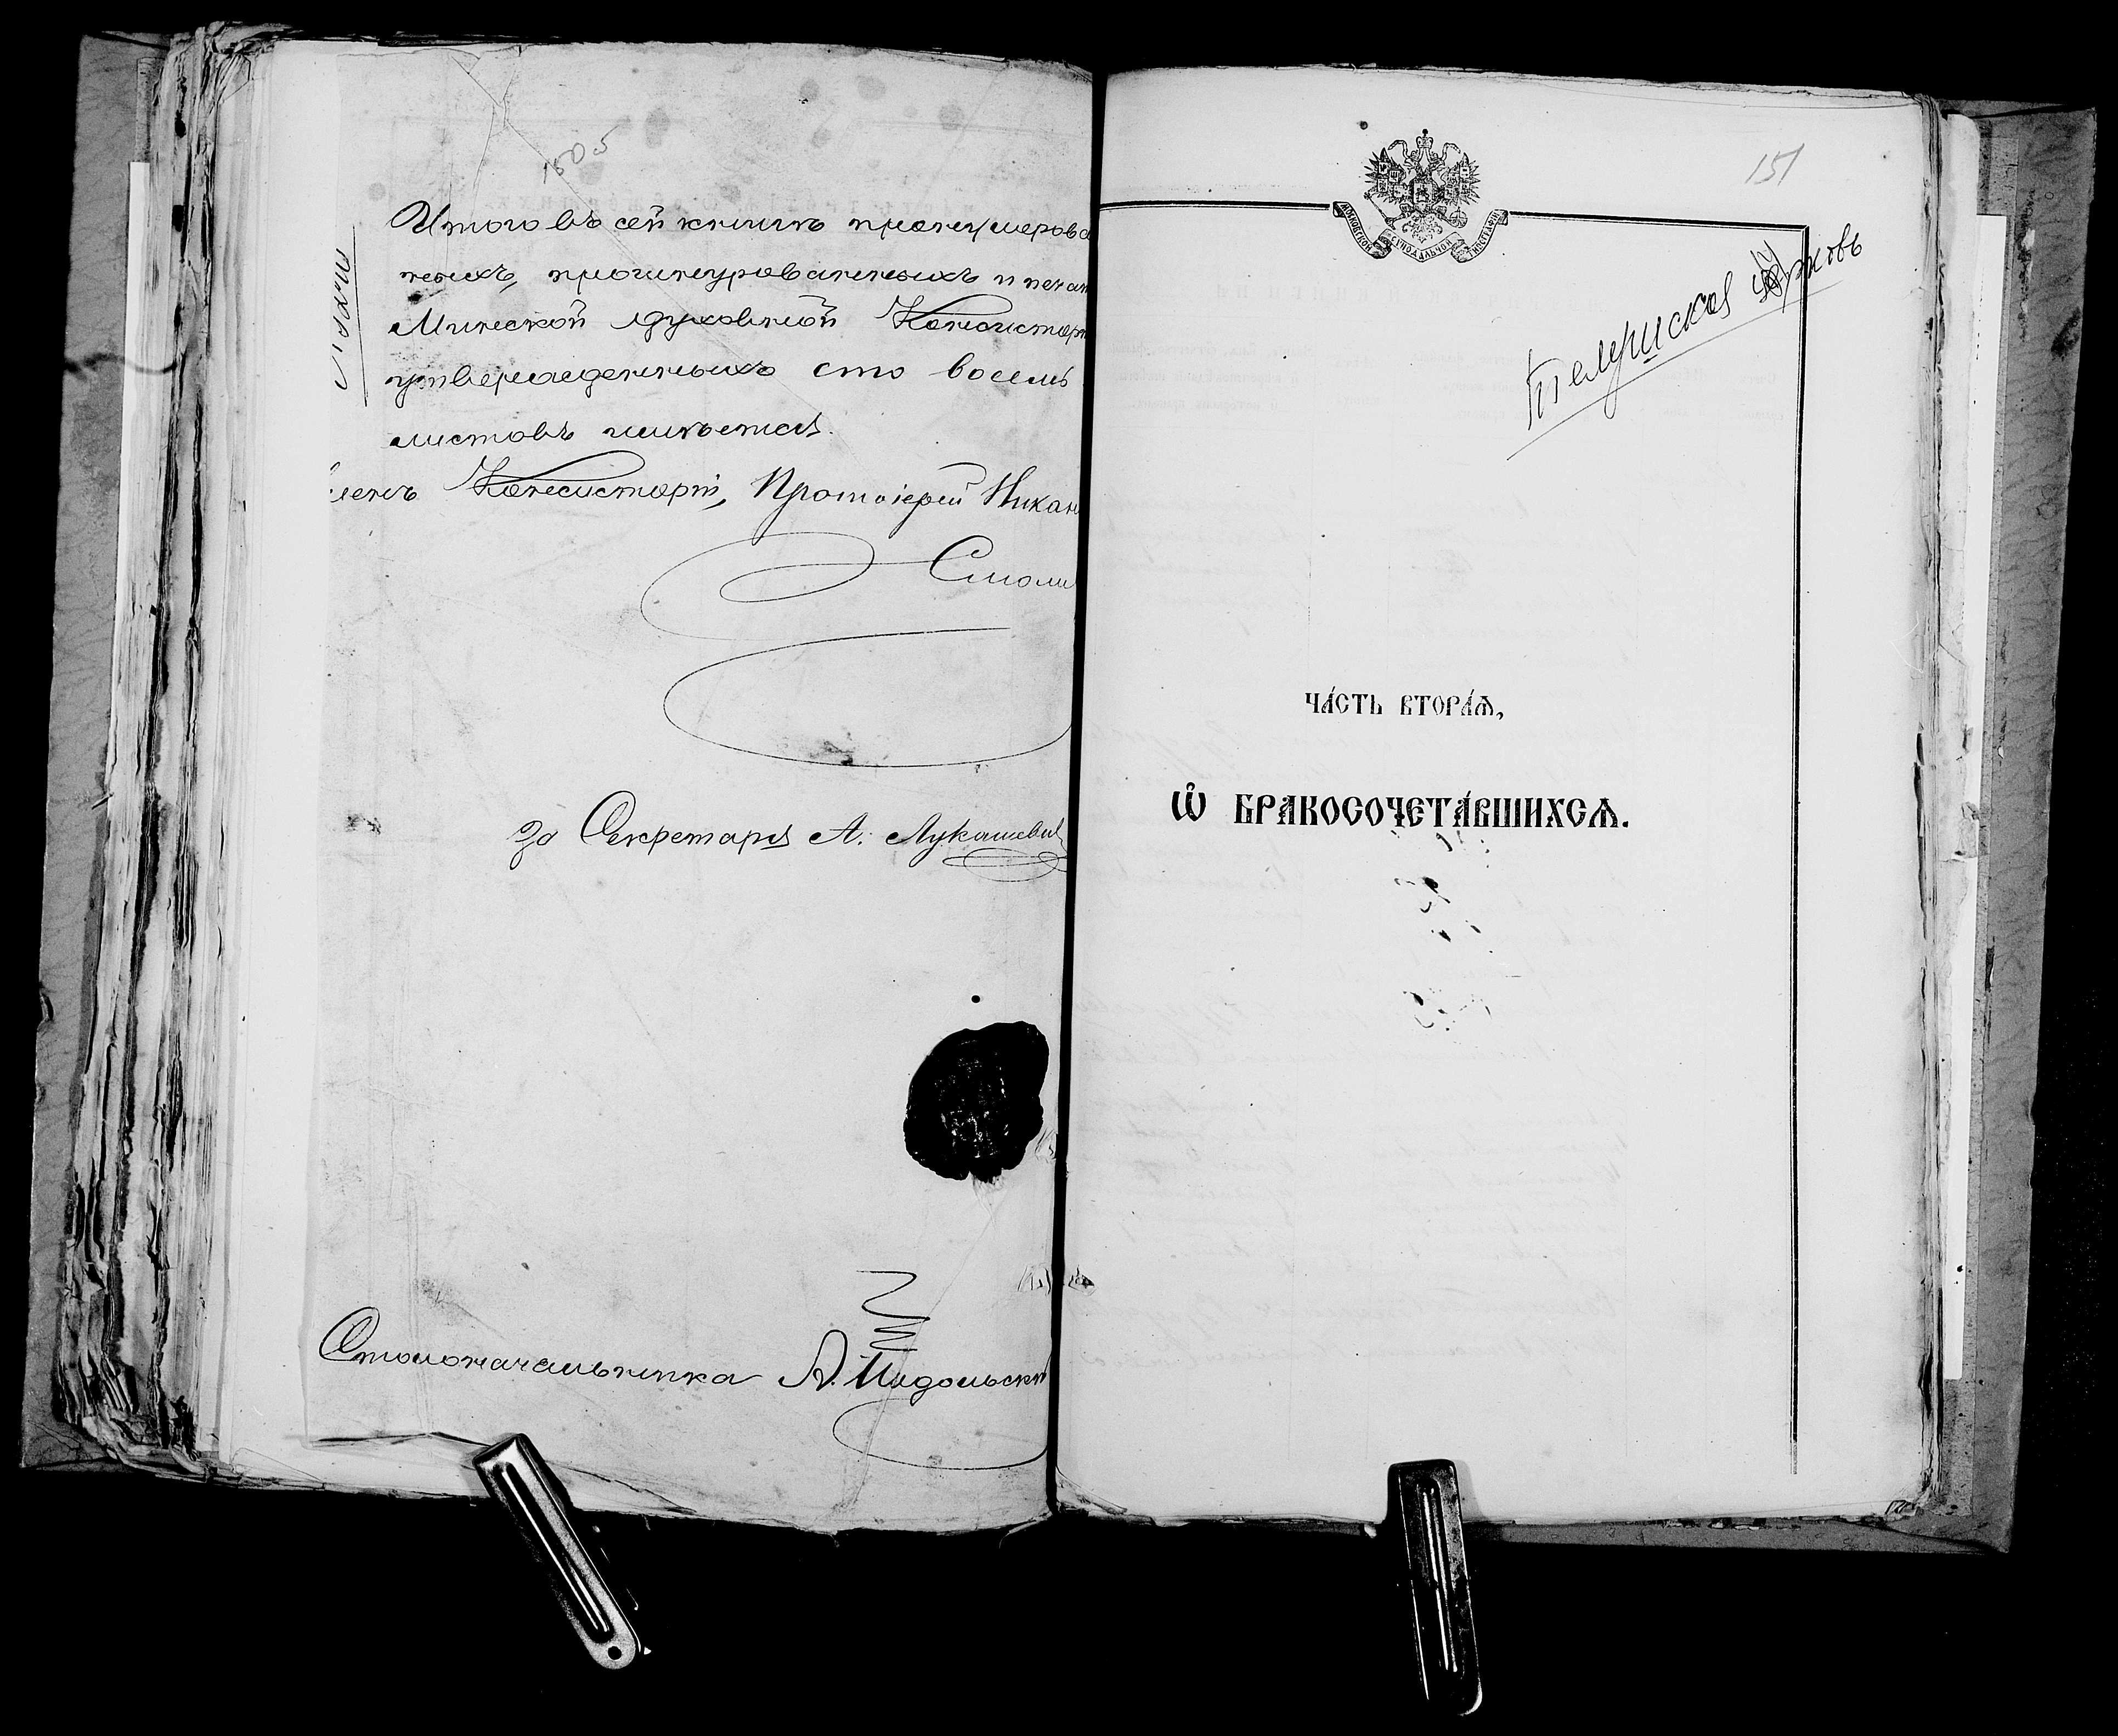 1805
Итого въ сей книгѣ пронумерова
ныхъ, прошнурованныхъ и печат
Минской духовной Консистор
утвержденныхъ сто восемь
листовъ имѣется.
Членъ Консисторіи, Протоіерей Никан
Смоли
За Секретаря А. Лукашевич
Столоначальника А. Подольскій
151
МОСКОВСКОЙ СѴНОДАЛЬНОЙ ТИПОГРАФІИ
церковь
ЧА́СТЬ ВТОРА́Ѧ,
Ѡ҆ БРАКОСОЧЕТА́ВШИХСѦ.